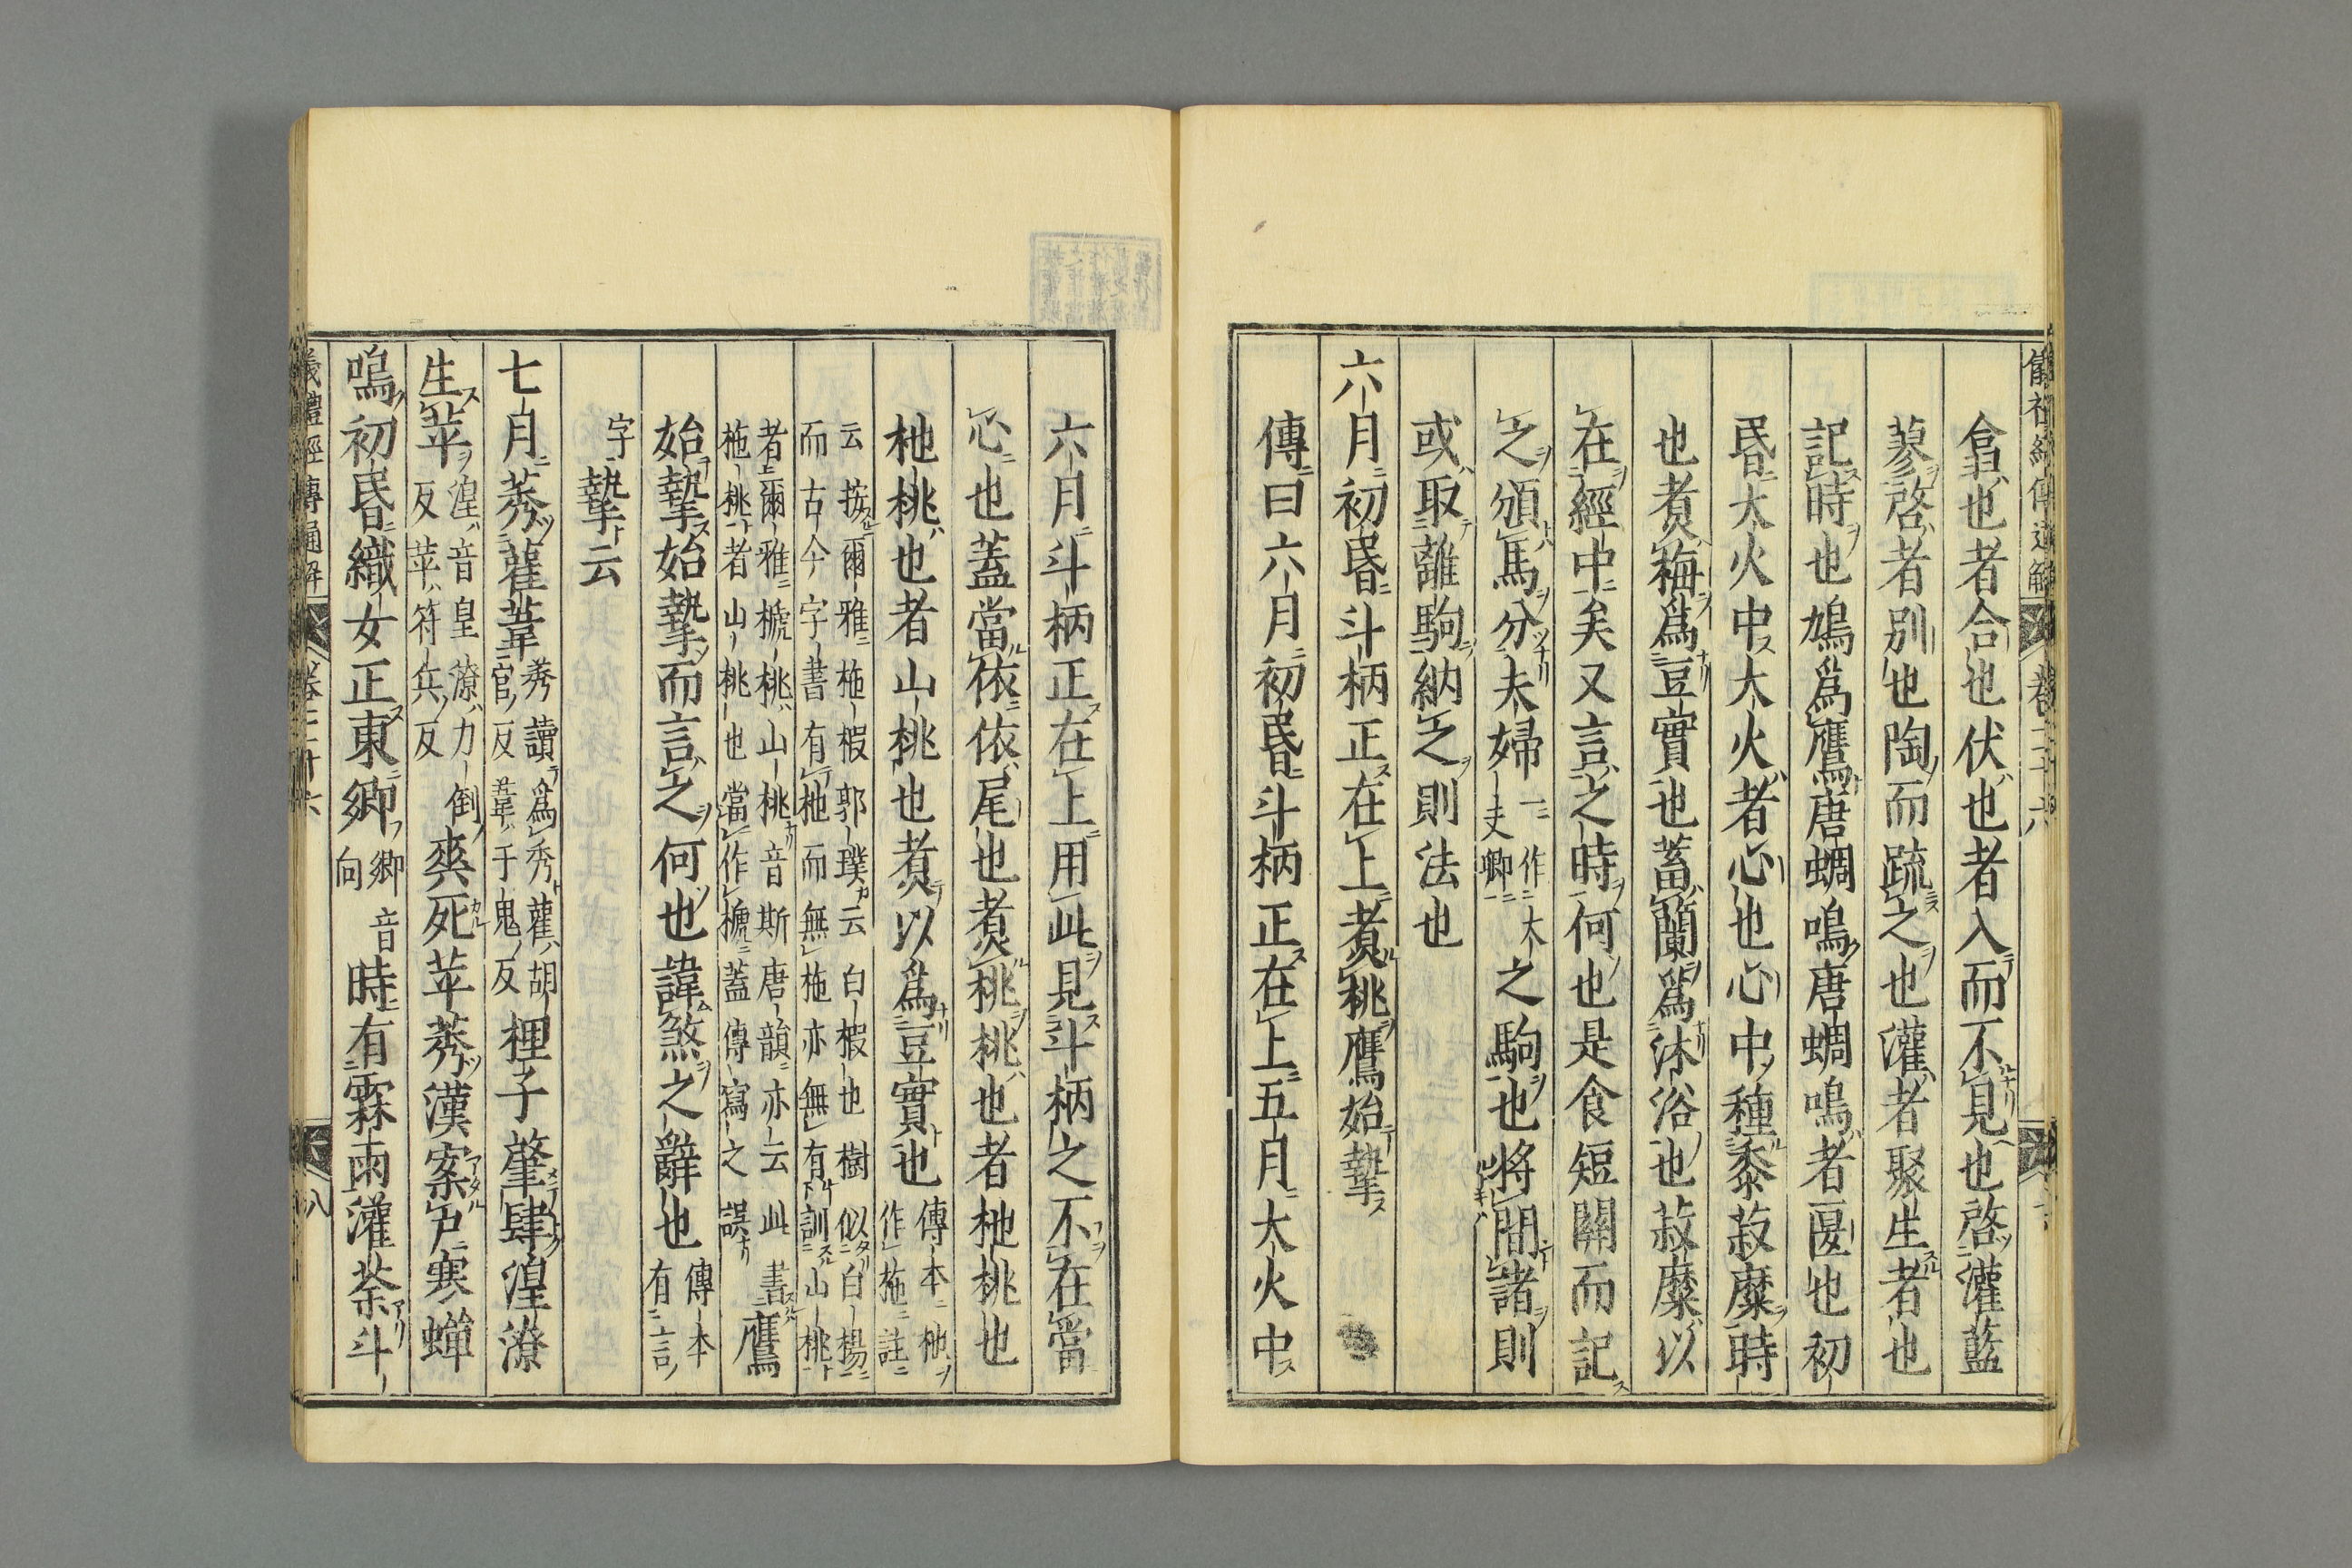 弇也者合也伏也者入而不見也啓灌藍
蓼啓者別也陶而疏之也灌者聚生者也
記時也鳩爲鷹唐蜩鳴唐蜩鳴者匽也初
昏大火中大火者心也心中種黍菽糜時
也煮梅爲豆實也蓄蘭爲沐浴也菽糜以
在經中矣又言之時何也是食短關而記
之頒馬分夫婦一作大夫卿之駒也將間諸則
或取離駒納之則法也
六月初昏斗柄正在上煮桃鷹始摯
傳曰六月初昏斗柄正在上五月大火中
六月斗柄正在上用此見斗柄之不在當
心也蓋當依依尾也煮桃桃也者杝桃也
杝桃也者山桃也煮以爲豆實也傳本杝作拖註
云按爾雅柂椵郭璞云白椵也樹似白楊
而古今字書有杝而無拖亦無有訓山桃
者爾雅榹桃山桃音斯唐韻亦云此
拖桃者山桃也當作榹蓋傳寫之誤書鷹
始摯始摯而言之何也諱煞之辭也傳本有言
字摯云
七月莠雚葦莠讀爲秀雚胡官反葦于鬼反狸子肇肆湟潦
生苹湟音皇潦力倒反苹符兵反爽死苹莠漢案戸寒蟬
鳴初昏織女正東鄉鄉音向時有霖雨灌荼斗
儀禮經傳通解 卷二十六 八